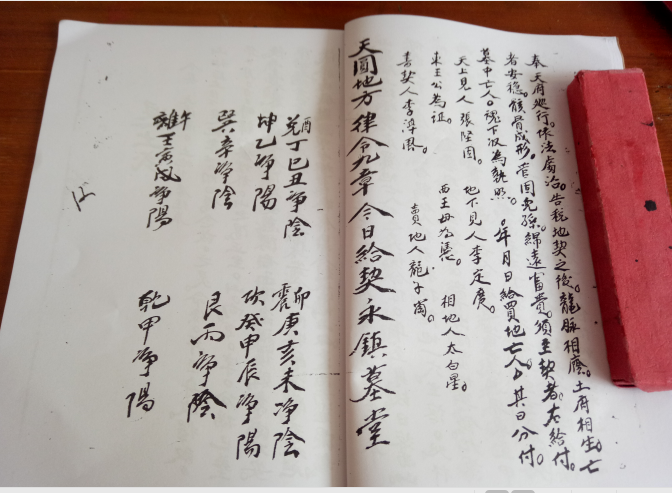 奉天府巡行。依法處治。告祝地契之後。龍脉相應。土府相生。亡
者安穩。骸骨成形。兒孫綿遠富貴。須至執者。右給付。
墓中亡人。魂下收為執照。年月日給買地亡人厶其日分付。
天上見人張堅固。地下見人李定度。
東王公為証。西王母為憑。相地人太白星。
書契人李淳風。賣地人龍子岡。
天圓地方律令九章今日給契永鎮墓堂
酉
兌丁巳丑净陰
卯
震庚亥未净陰
坤乙净陽
坎癸申辰净陽
巽辛净陰
艮丙净陰
午
離壬寅戌净陽
乾甲净陽
12